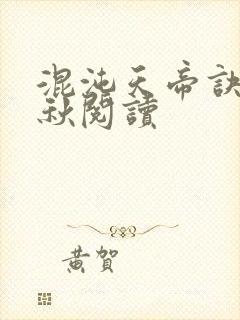 混沌天帝訣
秋閱讀
黃賀